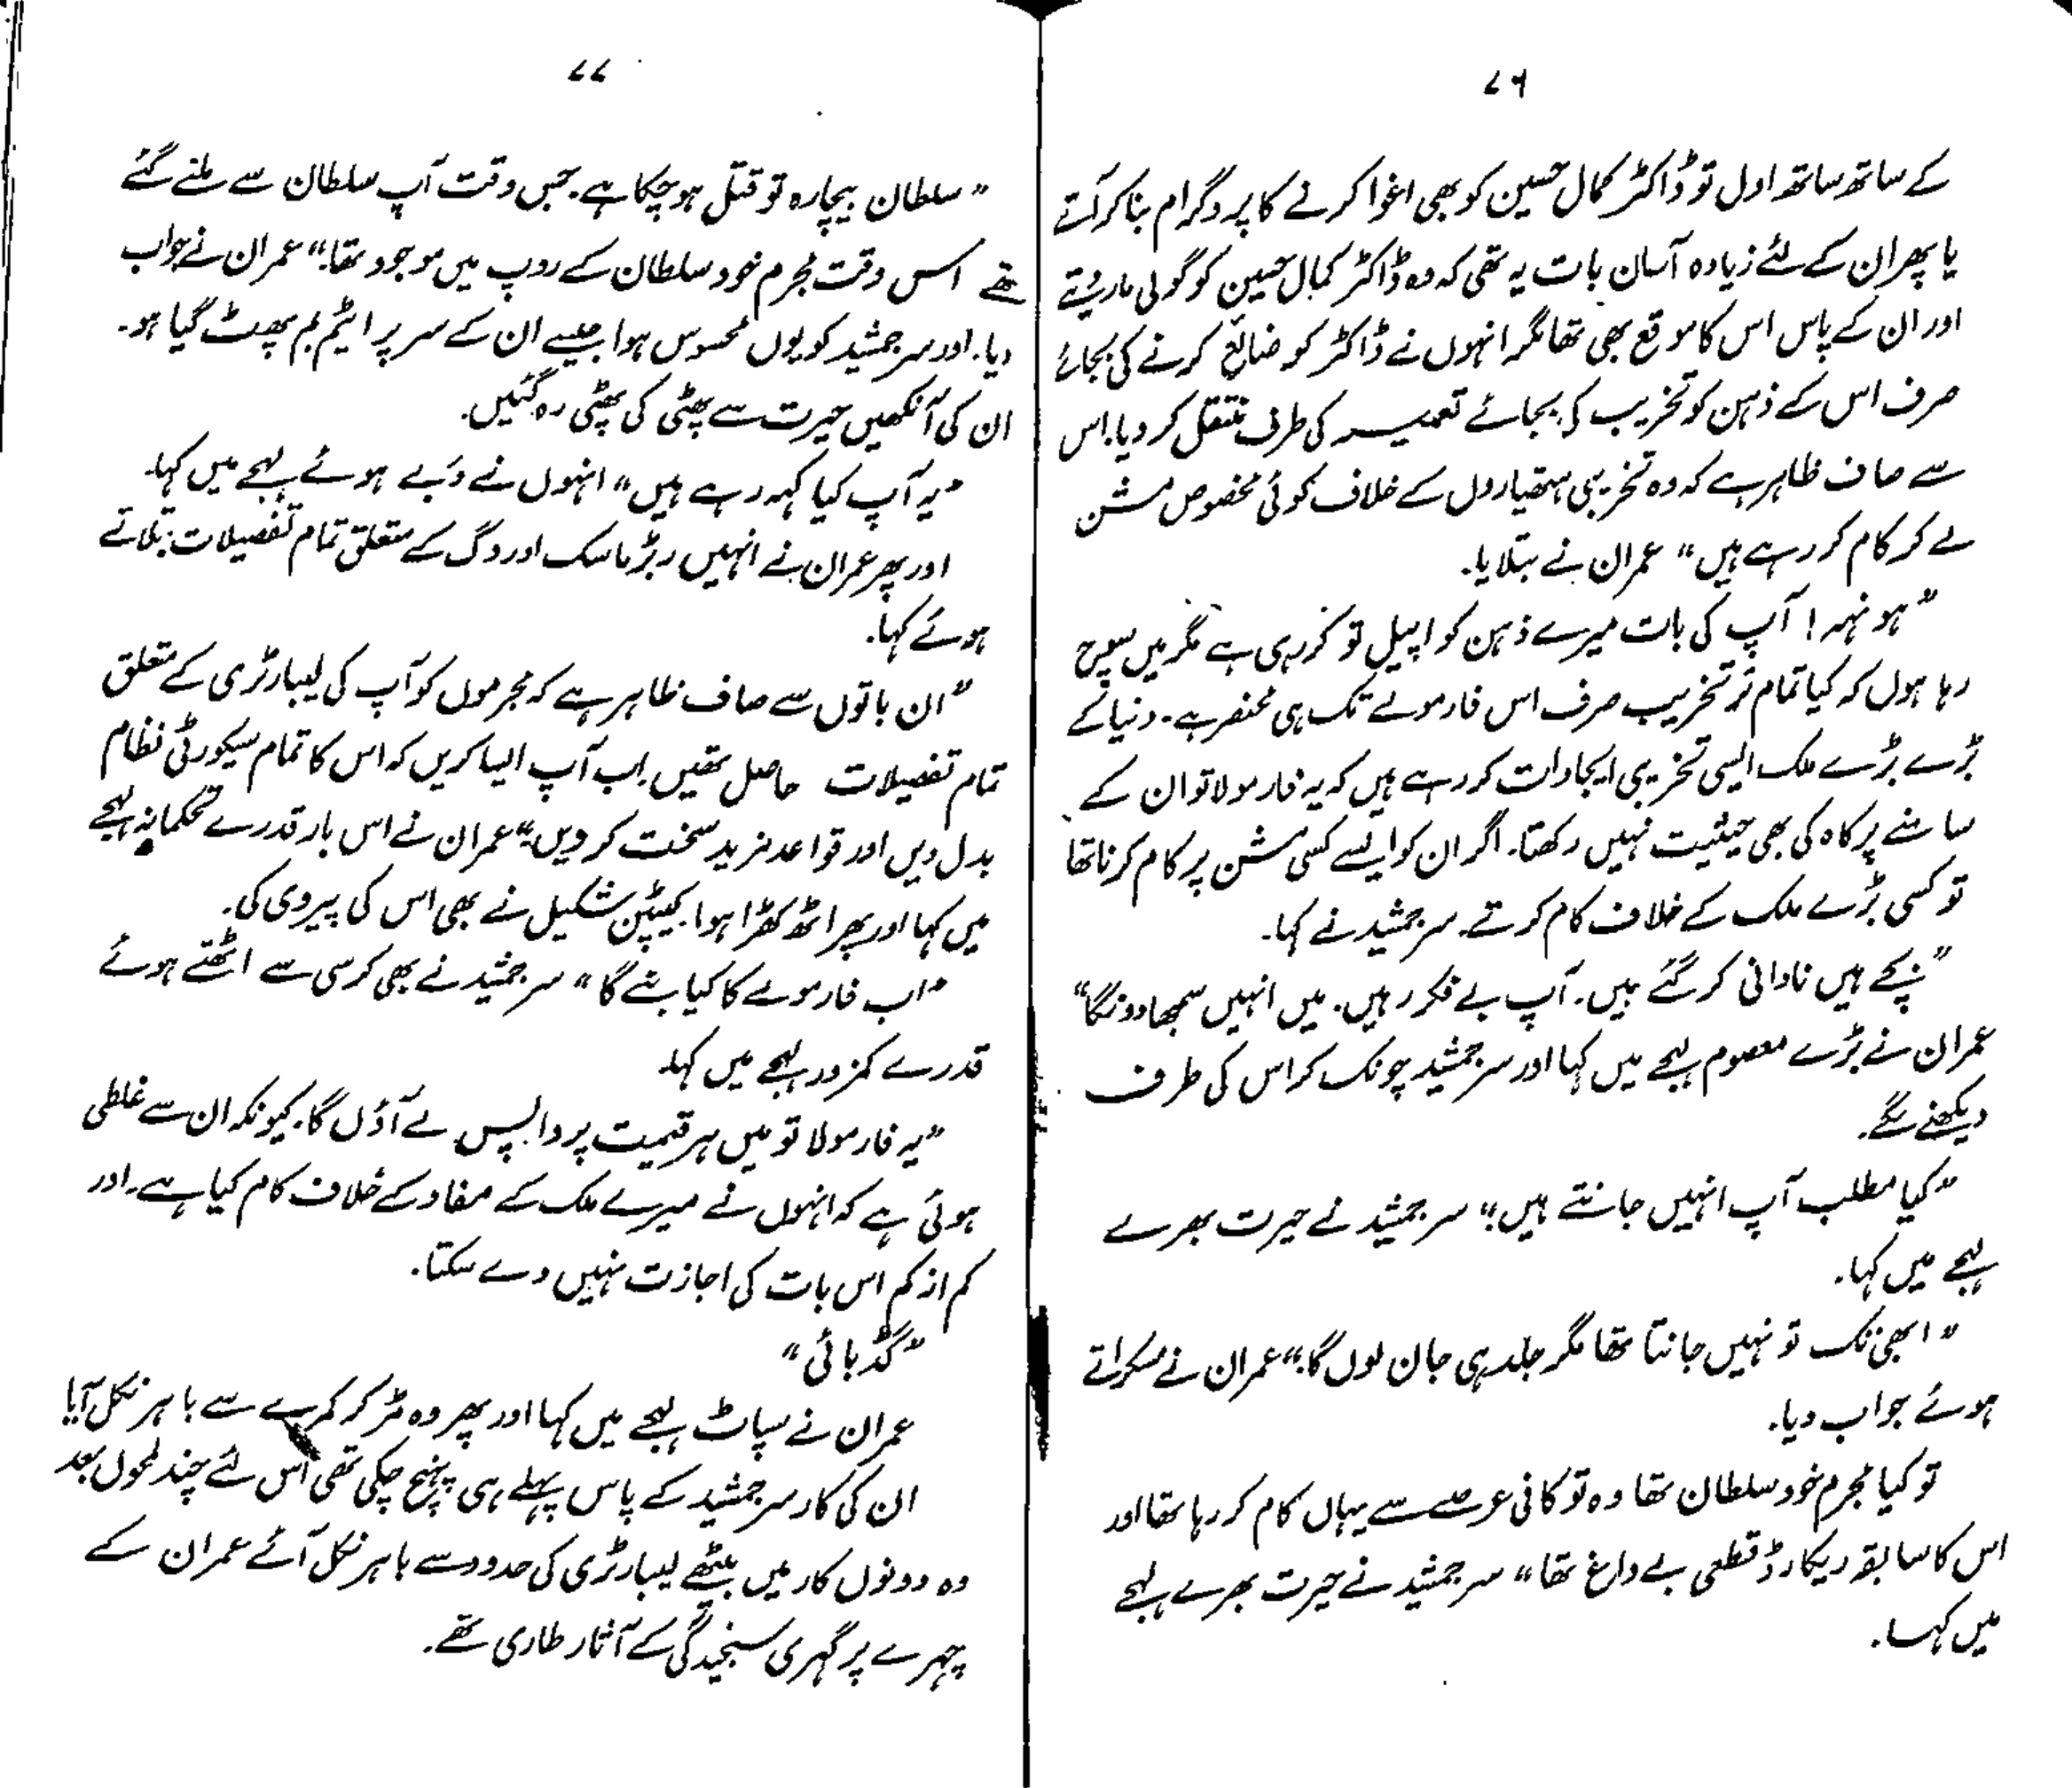 ۷۶
کے ساتھ ساتھ اول تو ڈاکٹر کمال حسین کو بھی اغوا کرنے کا پروگرام بنا کر آتے
یا پھر ان کے لئے زیادہ آسان بات یہ تھی کہ وہ ڈاکٹر کمال حسین کو گولی مار دیتے
اور ان کے پاس اس کا موقع بھی تھا مگر انہوں نے ڈاکٹر کو ضائع کرنے کی بجائے
صرف اس کے ذہن کو تخریب کی بجائے تعمیر کی طرف منتقل کر دیا۔ اس
سے صاف ظاہر ہے کہ وہ تخریبی ہتھیاروں کے خلاف کوئی مخصوص مشن
لے کر کام کر رہے ہیں" عمران نے بتلایا۔
"ہونہہ! آپ کی بات میرے ذہن کو اپیل تو کر رہی ہے مگر میں سوچ
رہا ہوں کہ کیا تمام تر تخریب صرف اس فارمولے تک ہی منحصر ہے۔ دنیا کے
بڑے بڑے ملک ایسی تخریبی ایجادات کر رہے ہیں کہ یہ فارمولا تو ان کے
سامنے پرکاہ کی بھی حیثیت نہیں رکھتا۔ اگر ان کو ایسے کسی مشن پر کام کرنا تھا
تو کسی بڑے ملک کے خلاف کام کرتے۔ سر جمشید نے کہا۔
"بچے ہیں نادانی کر گئے ہیں۔ آپ بے فکر رہیں۔ میں انہیں سمجھا دونگا"
عمران نے بڑے معصوم لہجے میں کہا اور سر جمشید چونک کر اس کی طرف
دیکھنے لگے۔
"کیا مطلب آپ انہیں جانتے ہیں؟" سر جمشید نے حیرت بھرے
لہجے میں کہا۔
"ابھی تک تو نہیں جانتا تھا مگر جلد ہی جان لوں گا۔" عمران نے مسکراتے
ہوئے جواب دیا۔
تو کیا مجرم خود سلطان تھا وہ تو کافی عرصے سے یہاں کام کر رہا تھا اور
اس کا سابقہ ریکارڈ قطعی بے داغ تھا" سر جمشید نے حیرت بھرے لہجے
میں کہا۔
۷۷
"سلطان بیچارہ تو قتل ہو چکا ہے۔ جس وقت آپ سلطان سے ملنے گئے
تھے اس وقت مجرم خود سلطان کے روپ میں موجود تھا۔" عمران نے جواب
دیا۔ اور سر جمشید کو یوں محسوس ہوا جیسے ان کے سر پر ایٹم بم پھٹ گیا ہو۔
ان کی آنکھیں حیرت سے پھٹی کی پھٹی رہ گئیں۔
"یہ آپ کیا کہہ رہے ہیں" انہوں نے دبے ہوئے لہجے میں کہا۔
اور پھر عمران نے انہیں ربڑ ماسک اور وگ کے متعلق تمام تفصیلات بتلاتے
ہوئے کہا۔
"ان باتوں سے صاف ظاہر ہے کہ مجرموں کو آپ کی لیبارٹری کے متعلق
تمام تفصیلات حاصل تھیں۔ اب آپ ایسا کریں کہ اس کا تمام سیکورٹی نظام
بدل دیں اور قواعد مزید سخت کر دیں" عمران نے اس بار قدرے تحکمانہ لہجے
میں کہا اور پھر اٹھ کھڑا ہوا۔ کیپٹن شکیل نے بھی اس کی پیروی کی۔
"اب فارمولے کا کیا بنے گا" سر جمشید نے بھی کرسی سے اٹھتے ہوئے
قدرے کمزور لہجے میں کہا۔
"یہ فارمولا تو میں ہر قیمت پر واپس لے آؤں گا۔ کیونکہ ان سے غلطی
ہوئی ہے کہ انہوں نے میرے ملک کے مفاد کے خلاف کام کیا ہے۔ اور
کم از کم اس بات کی اجازت نہیں دے سکتا۔
"گڈ بائی"
عمران نے سپاٹ لہجے میں کہا اور پھر وہ مڑ کر کمرے سے باہر نکل آیا
ان کی کار سر جمشید کے پاس پہلے ہی پہنچ چکی تھی اس لئے چند لمحوں بعد
وہ دونوں کار میں بیٹھے لیبارٹری کی حدود سے باہر نکل آئے عمران کے
چہرے پر گہری سنجیدگی کے آثار طاری تھے۔